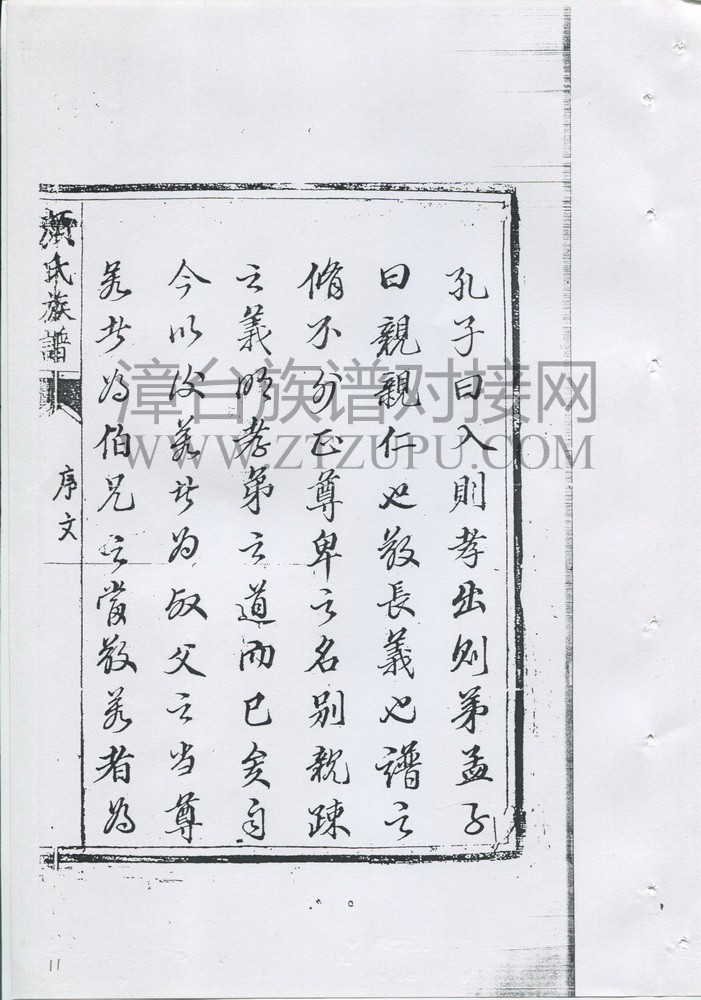 孔子曰入則孝出则弟孟子
曰親親仁也敬長義也譜之
脩不外正尊卑之名別親疎
之義明孝弟之道而已矣自
今以後若者为叔父之当尊
若者為伯兄之當敬若者為
氏族譜
序文
漳台族谱对接网
WWW.ZTZUPU.COM
11